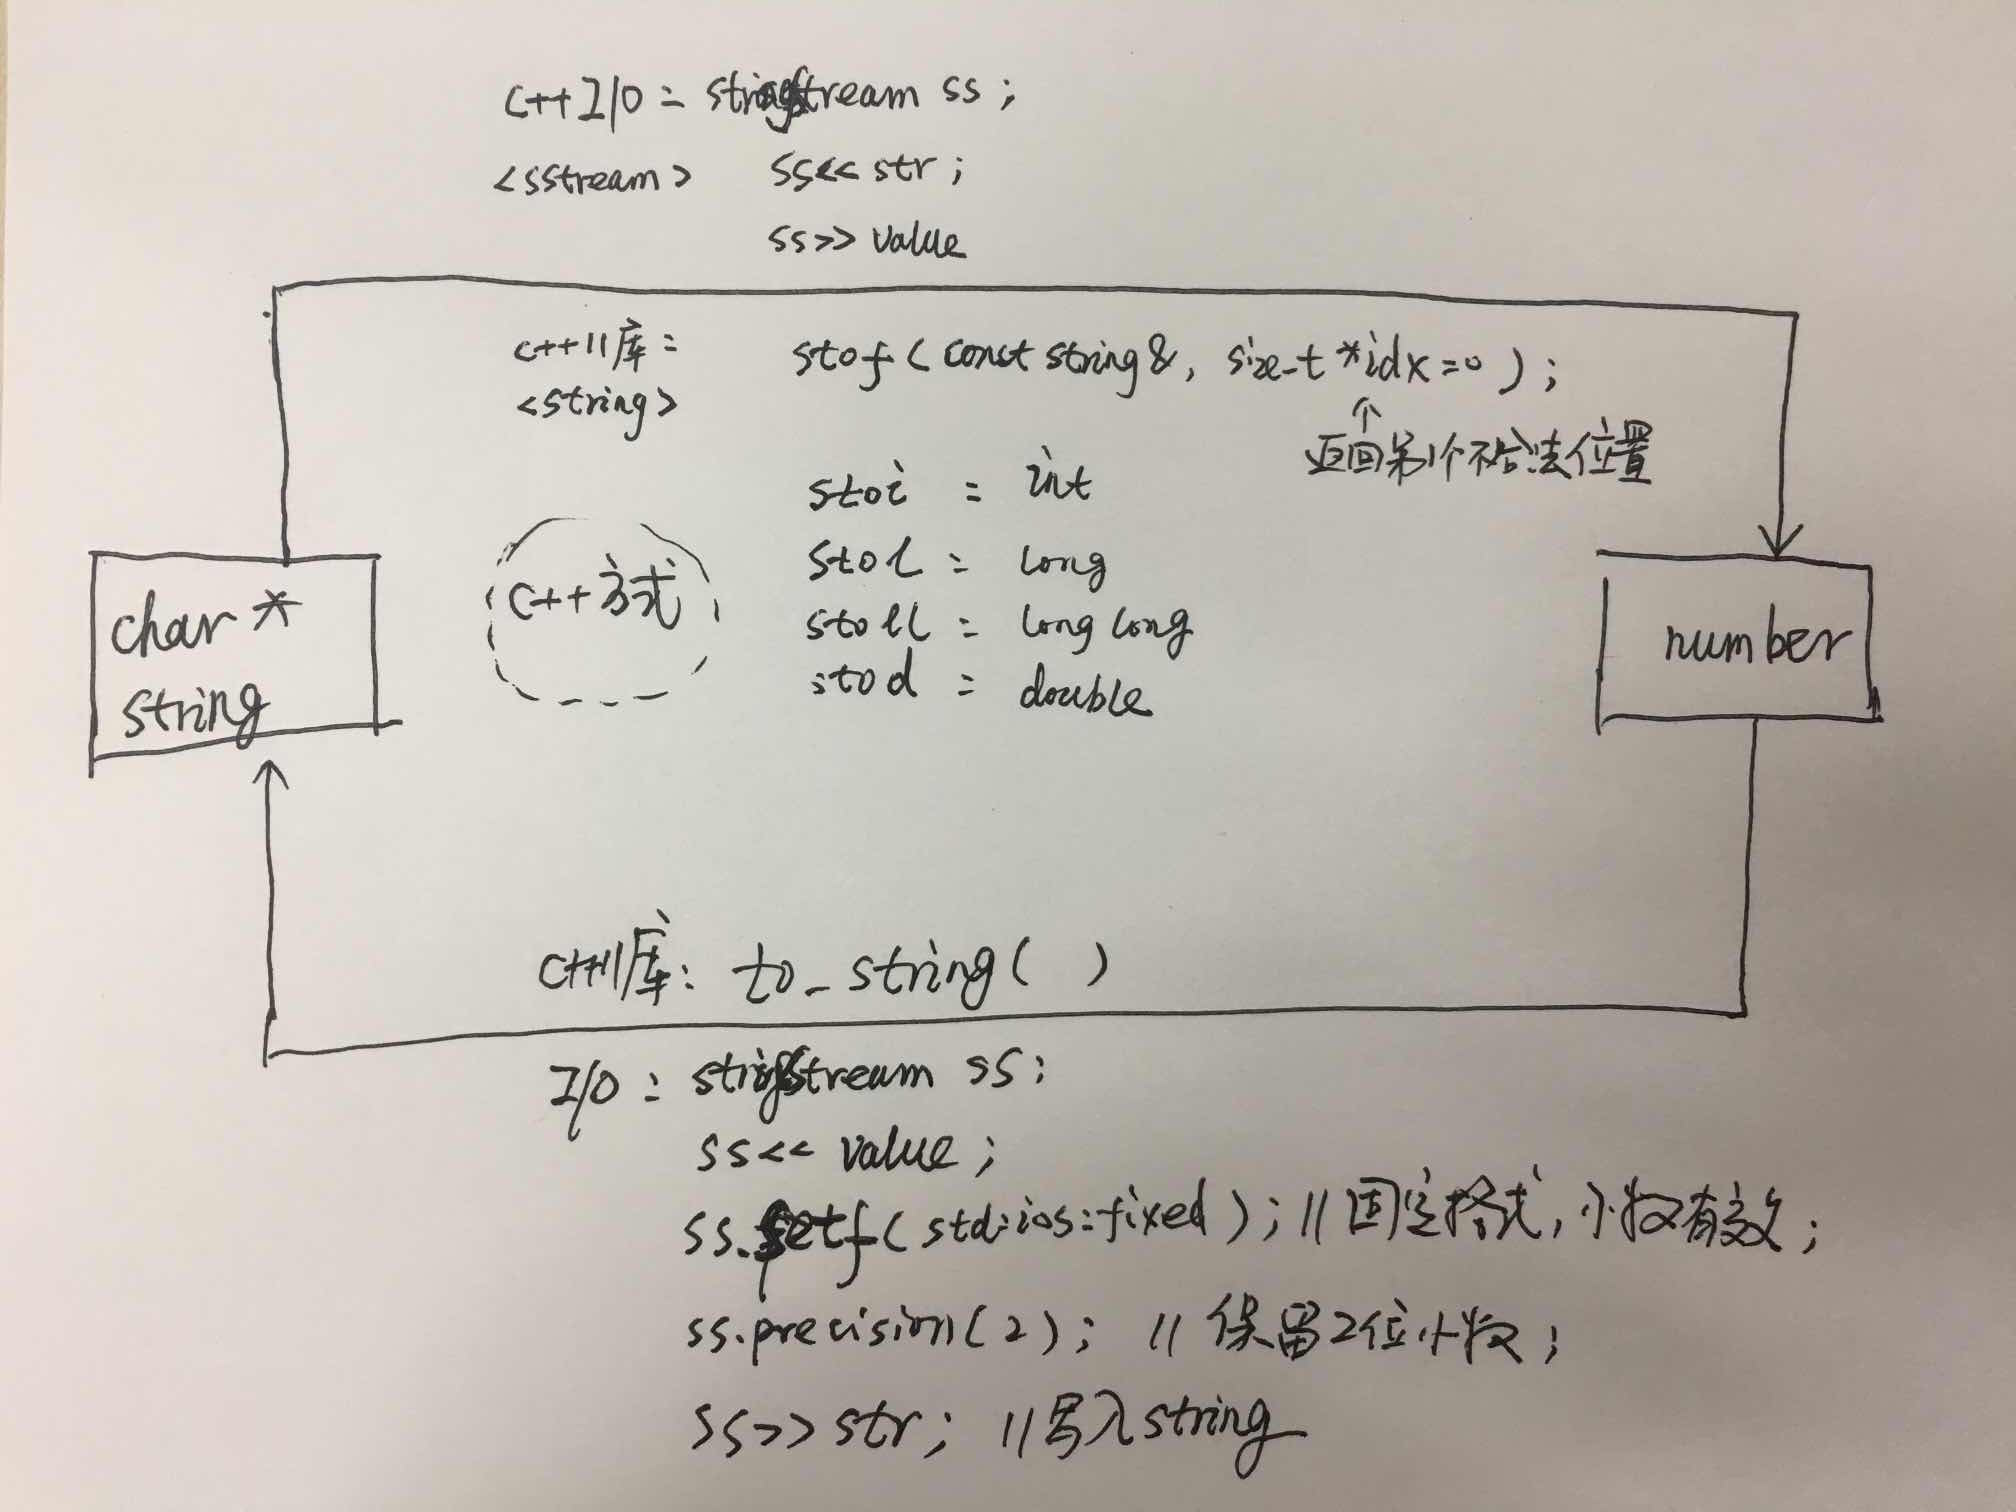 C++ I/O: stringstream ss;
<sstream> ss<< str;
ss>> value
C++11库:
<string>
stof( const string&, size_t *idx=0 );
返回第1个不合法位置
stoi : int
stol : long
stoll : long long
stod : double
C++方式
char *
string
number
C++11库: to_string( )
I/O: stringstream ss;
ss<< value;
ss.setf( std::ios::fixed ); // 固定格式, 小数有效;
ss.precision(2); // 保留2位小数;
ss>> str; //写入string